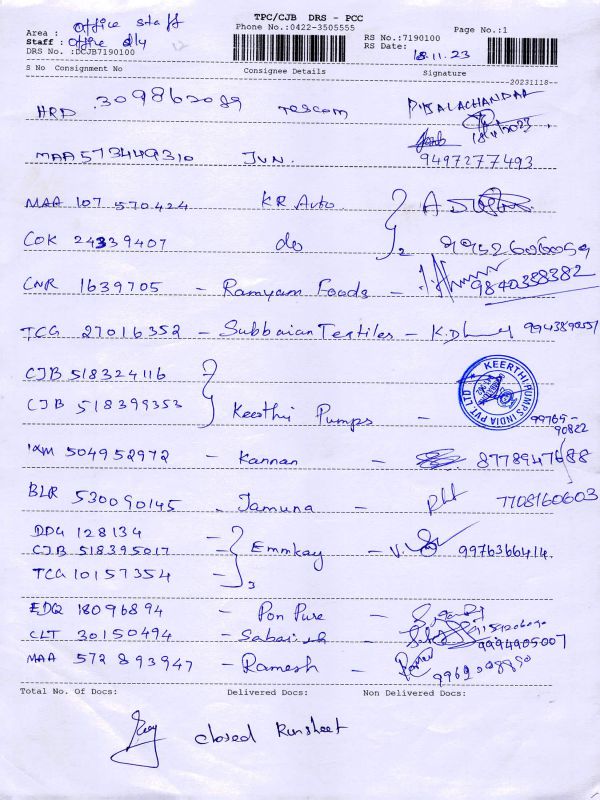 TPC/CJB DRS - PCC
Phone No.:0422-3505555
Area : office staff
Staff : office dly
DRS No. :DCJB7190100
RS No.:7190100
RS Date: 18.11.23
Page No.:1
S No Consignment No Consignee Details Signature
--20231118--
HRD 309862089 Tescom P.BALACHANDAR
18/11/2023
MAA 573449310 JVN. 9497277493
MAA 107 570424 KR Auto.
COK 24339407 do 2
CNR 1639705 - Ramyam Foods - 9840388382
TCG 27016352 - Subbaian Textiles - K.Dh
CJB 518324116
CJB 518399353 Keerthi Pumps -
KEERTHI PUMPS INDIA PVT. LTD
99769-
90822
504952972 - Kannan - 8778947688
BLR 530090145 - Jamuna - 7708160603
DDG 128134 -
CJB 518395017 - Emmkay - V. 9976366414.
TCG 10157354 - 3
EDQ 18096894 - Pon Pure -
CLT 30150494 - 9994905007
MAA 572893947 - Ramesh -
Total No. Of Docs: Delivered Docs: Non Delivered Docs:
closed Runsheet